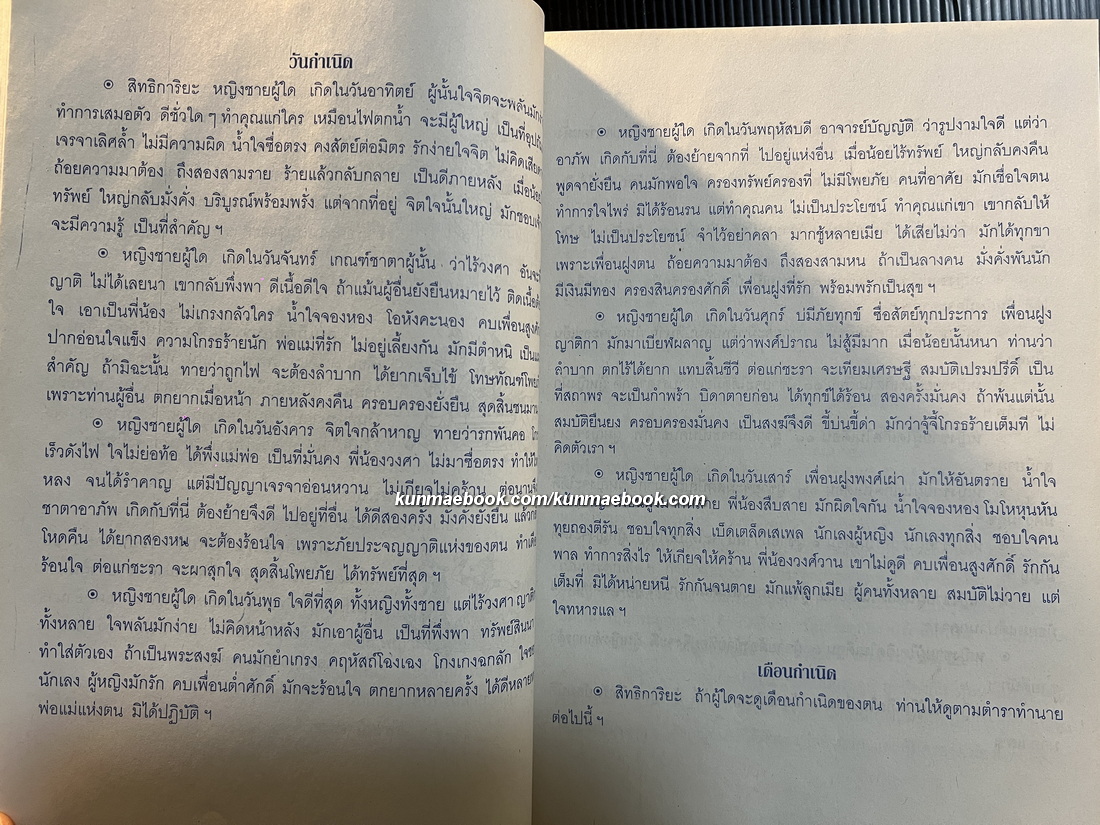 วันกำเนิด
๏ สิทธิการิยะ หญิงชายผู้ใด เกิดในวันอาทิตย์ ผู้นั้นใจจิตจะพลันมัก
ทำการเสมอตัว ดีชั่วใด ๆ ทำคุณแก่ใคร เหมือนไฟตกน้ำ จะมีผู้ใหญ่ เป็นที่
เจรจาเลิศล้ำ ไม่มีความผิด น้ำใจซื่อตรง คงสัตย์ต่อมิตร รักง่ายใจจิต ไม่คิด
ถ้อยความมาต้อง ถึงสองสามราย ร้ายแล้วกลับกลาย เป็นดีภายหลัง
ทรัพย์ ใหญ่กลับมั่งคั่ง บริบูรณ์พร้อมพรั่ง แต่จากที่อยู่ จิตใจนั้นใหญ่ มักชอบ
จะมีความรู้ เป็นที่สำคัญ ฯ
๏ หญิงชายผู้ใด เกิดในวันจันทร์ เกณฑ์ชาตาผู้นั้น ว่าไร้วงศา
ญาติ ไม่ได้เลยนา เขากลับพึ่งพา ดีเนื้อดีใจ ถ้าแม้นผู้อื่นยังยืนหมายไว้
ใจ เอาเป็นพี่น้อง ไม่เกรงกลัวใคร น้ำใจจองหอง โอหังคะนอง คบเพื่อน
ปากอ่อนใจแข็ง ความโกรธร้ายนัก พ่อแม่ที่รัก ไม่อยู่เลี้ยงกัน มักมีตำหนิ
สำคัญ ถ้ามิฉะนั้น ทายว่าถูกไฟ จะต้องลำบาก ได้ยากเจ็บไข้ โทษทัณฑ์
เพราะท่านผู้อื่น ตกยากเมื่อหน้า ภายหลังคงคืน ครอบครองยั่งยืน
๏ หญิงชายผู้ใด เกิดในวันอังคาร จิตใจกล้าหาญ ทายว่ารกพันคอ
เร็วดังไฟ ใจไม่ย่อท้อ ได้พึ่งแม่พ่อ เป็นที่มั่นคง พี่น้องวงศา ไม่มาซื่อตรง
หลง จนได้รำคาญ แต่มีปัญญาเจรจาอ่อนหวาน ไม่เกียจไม่คร้าน
ชาตาอาภัพ เกิดกับที่นี่ ต้องย้ายจึงดี ไปอยู่ที่อื่น ได้ดีสองครั้ง มั่งคั่งยั่งยืน
โหดคืน ได้ยากสองหน จะต้องร้อนใจ เพราะภัยประจญญาติแห่งของตน
ร้อนใจ ต่อแก่ชะรา จะผาสุกใจ สุดสิ้นโพยภัย ได้ทรัพย์ที่สุด ฯ
๏ หญิงชายผู้ใด เกิดในวันพุธ ใจดีที่สุด ทั้งหญิงทั้งชาย แต่ไร้วงศา
ทั้งหลาย ใจพลันมักง่าย ไม่คิดหน้าหลัง มักเอาผู้อื่น เป็นที่พึ่งพา
ทำใส่ตัวเอง ถ้าเป็นพระสงฆ์ คนมักยำเกรง คฤหัสถ์โฉ่งเอง โกงเกงฉกลัก
นักเลง ผู้หญิงมักรัก คบเพื่อนต่ำศักดิ์ มักจะร้อนใจ ตกยากหลายครั้ง
พ่อแม่แห่งตน มิได้ปฏิบัติ ฯ
๏ หญิงชายผู้ใด เกิดในวันพฤหัสบดี อาจารย์บัญญัติ ว่ารูปงามใจดี แต่ว่า
อาภัพ เกิดกับที่นี่ ต้องย้ายจากที่ ไปอยู่แห่งอื่น เมื่อน้อยไร้ทรัพย์ ใหญ่กลับคงคืน
พูดจายั่งยืน คนมักพอใจ ครองทรัพย์ครองที่ ไม่มีโพยภัย คนที่อาศัย มักเชื่อใจตน
ทำการใจไพร่ มิได้ร้อนรน แต่ทำคุณคน ไม่เป็นประโยชน์ ทำคุณแก่เขา เขากลับให้
โทษ ไม่เป็นประโยชน์ จำไว้อย่าคลา มากชู้หลายเมีย ได้เสียไม่ว่า มักได้ทุกขา
เพราะเพื่อนฝูงตน ถ้อยความมาต้อง ถึงสองสามหน ถ้าเป็นลางคน มั่งคั่งพันนัก
มีเงินมีทอง ครองสินครองศักดิ์ เพื่อนฝูงที่รัก พร้อมพรักเป็นสุข ฯ
๏ หญิงชายผู้ใด เกิดในวันศุกร์ บ่มีภัยทุกข์ ซื่อสัตย์ทุกประการ เพื่อนฝูง
ญาติกา มักมาเบียฬผลาญ แต่ว่าพงศ์ปราณ ไม่สู้มีมาก เมื่อน้อยนั้นหนา ท่านว่า
ลำบาก ตกไร้ได้ยาก แทบสิ้นชีวี ต่อแก่ชะรา จะเทียมเศรษฐี สมบัติเปรมปรีดิ์ เป็น
ที่สถาพร จะเป็นกำพร้า บิดาตายก่อน ได้ทุกข์ได้ร้อน สองครั้งมั่นคง ถ้าพ้นแต่นั้น
สมบัติยืนยง ครอบครองมั่นคง เป็นสงฆ์จึงดี ขี้บ่นขี้ด่า มักว่าจู้จี้โกรธร้ายเต็มที ไม่
คิดตัวเรา ฯ
๏ หญิงชายผู้ใด เกิดในวันเสาร์ เพื่อนฝูงพงศ์เผ่า มักให้อันตราย น้ำใจ
พี่น้องสืบสาย มักผิดใจกัน น้ำใจจองหอง โมโหหุนหัน
ทุยถองตีรัน ชอบใจทุกสิ่ง เบ็ดเตล็ดเสเพล นักเลงผู้หญิง นักเลงทุกสิ่ง ชอบใจคน
พาล ทำการสิ่งไร ให้เกียจให้คร้าน พี่น้องวงศ์วาน เขาไม่ดูดี คบเพื่อนสูงศักดิ์ รักกัน
เต็มที่ มิได้หน่ายหนี รักกันจนตาย มักแพ้ลูกเมีย ผู้คนทั้งหลาย สมบัติไม่วาย แต่
ใจทหารแล ฯ
เดือนกำเนิด
๏ สิทธิการิยะ ถ้าผู้ใดจะดูเดือนกำเนิดของตน ท่านให้ดูตามตำราทำนาย
ต่อไปนี้ ฯ
kunmaebook.com/kunmaebook.com